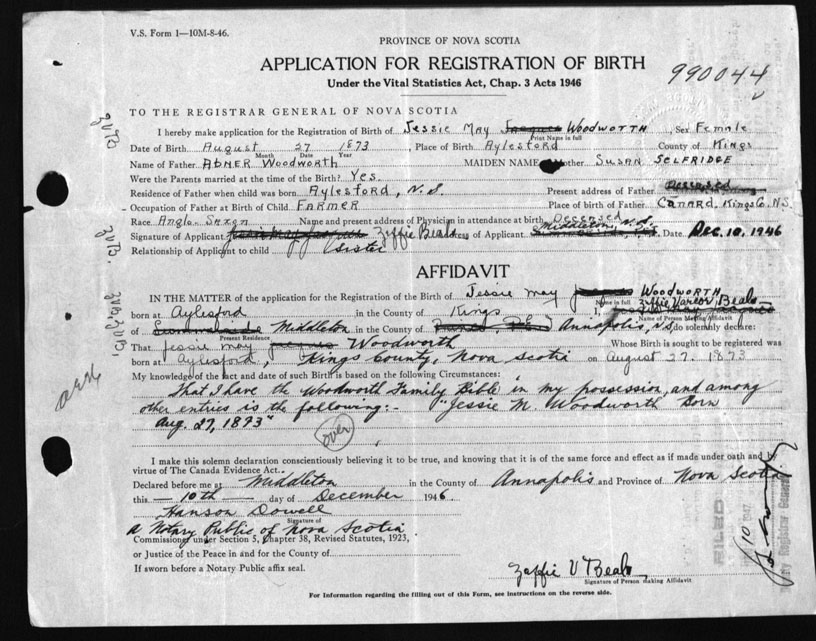 V.S. Form 1—10M-8-46.
PROVINCE OF NOVA SCOTIA
APPLICATION FOR REGISTRATION OF BIRTH
Under the Vital Statistics Act, Chap. 3 Acts 1946
990044
TO THE REGISTRAR GENERAL OF NOVA SCOTIA
I hereby make application for the Registration of Birth of Jessie May Jacques WOODWORTH, Sex Female
Print Name in full
Date of Birth August 27 1873, Place of Birth Aylesford County of Kings
Month Date Year
Name of Father ABNER WOODWORTH MAIDEN NAME Mother SUSAN SELFRIDGE
Were the Parents married at time of the Birth? Yes.
Residence of Father when child was born Aylesford, N.S. Present address of Father Deceased
Occupation of Father at Birth of Child FARMER Place of birth of Father Canard, Kings Co. N.S.
Race Anglo Saxon Name and present address of Physician in attendance at birth Deceased
Signature of Applicant Jessie May Jacques Zeffie Beals Address of Applicant Middleton, N.S. Date Dec. 10, 1946
Relationship of Applicant to child Sister
AFFIDAVIT
IN THE MATTER of the application for the Registration of Birth of Jessie May Jacques WOODWORTH
Name in full
born at Aylesford in the County of Kings I, Zeffie Beals
Name of Person Making Affidavit
of Summerside Middleton in the County of Annapolis, N.S. do solemnly declare:
Present Residence
That Jessie May Jacques Woodworth Whose Birth is sought to be registered was
born at Aylesford, Kings County, Nova Scotia on August 27. 1873
My knowledge of the fact and date of such Birth is based on the following Circumstances:
That I have the Woodworth Family Bible in my possession, and among
other entries is the following:- "Jessie M. Woodworth Born
Aug. 27, 1873"
over
I make this solemn declaration conscientiously believing it to be true, and knowing that it is of the same force and effect as if made under oath and by
virtue of The Canada Evidence Act.
Declared before me at Middleton in the County of Annapolis and Province of Nova Scotia
this 10th day of December 1946.
Hanson Dowell
Signature of
A Notary Public of Nova Scotia
Commissioner under Section 5, Chapter 38, Revised Statutes, 1923,
or Justice of the Peace in and for the County of
If sworn before a Notary Public affix seal.
Zeffie V Beals
Signature of Person making Affidavit
For Information regarding the filling out of this Form, see instructions on the reverse side.